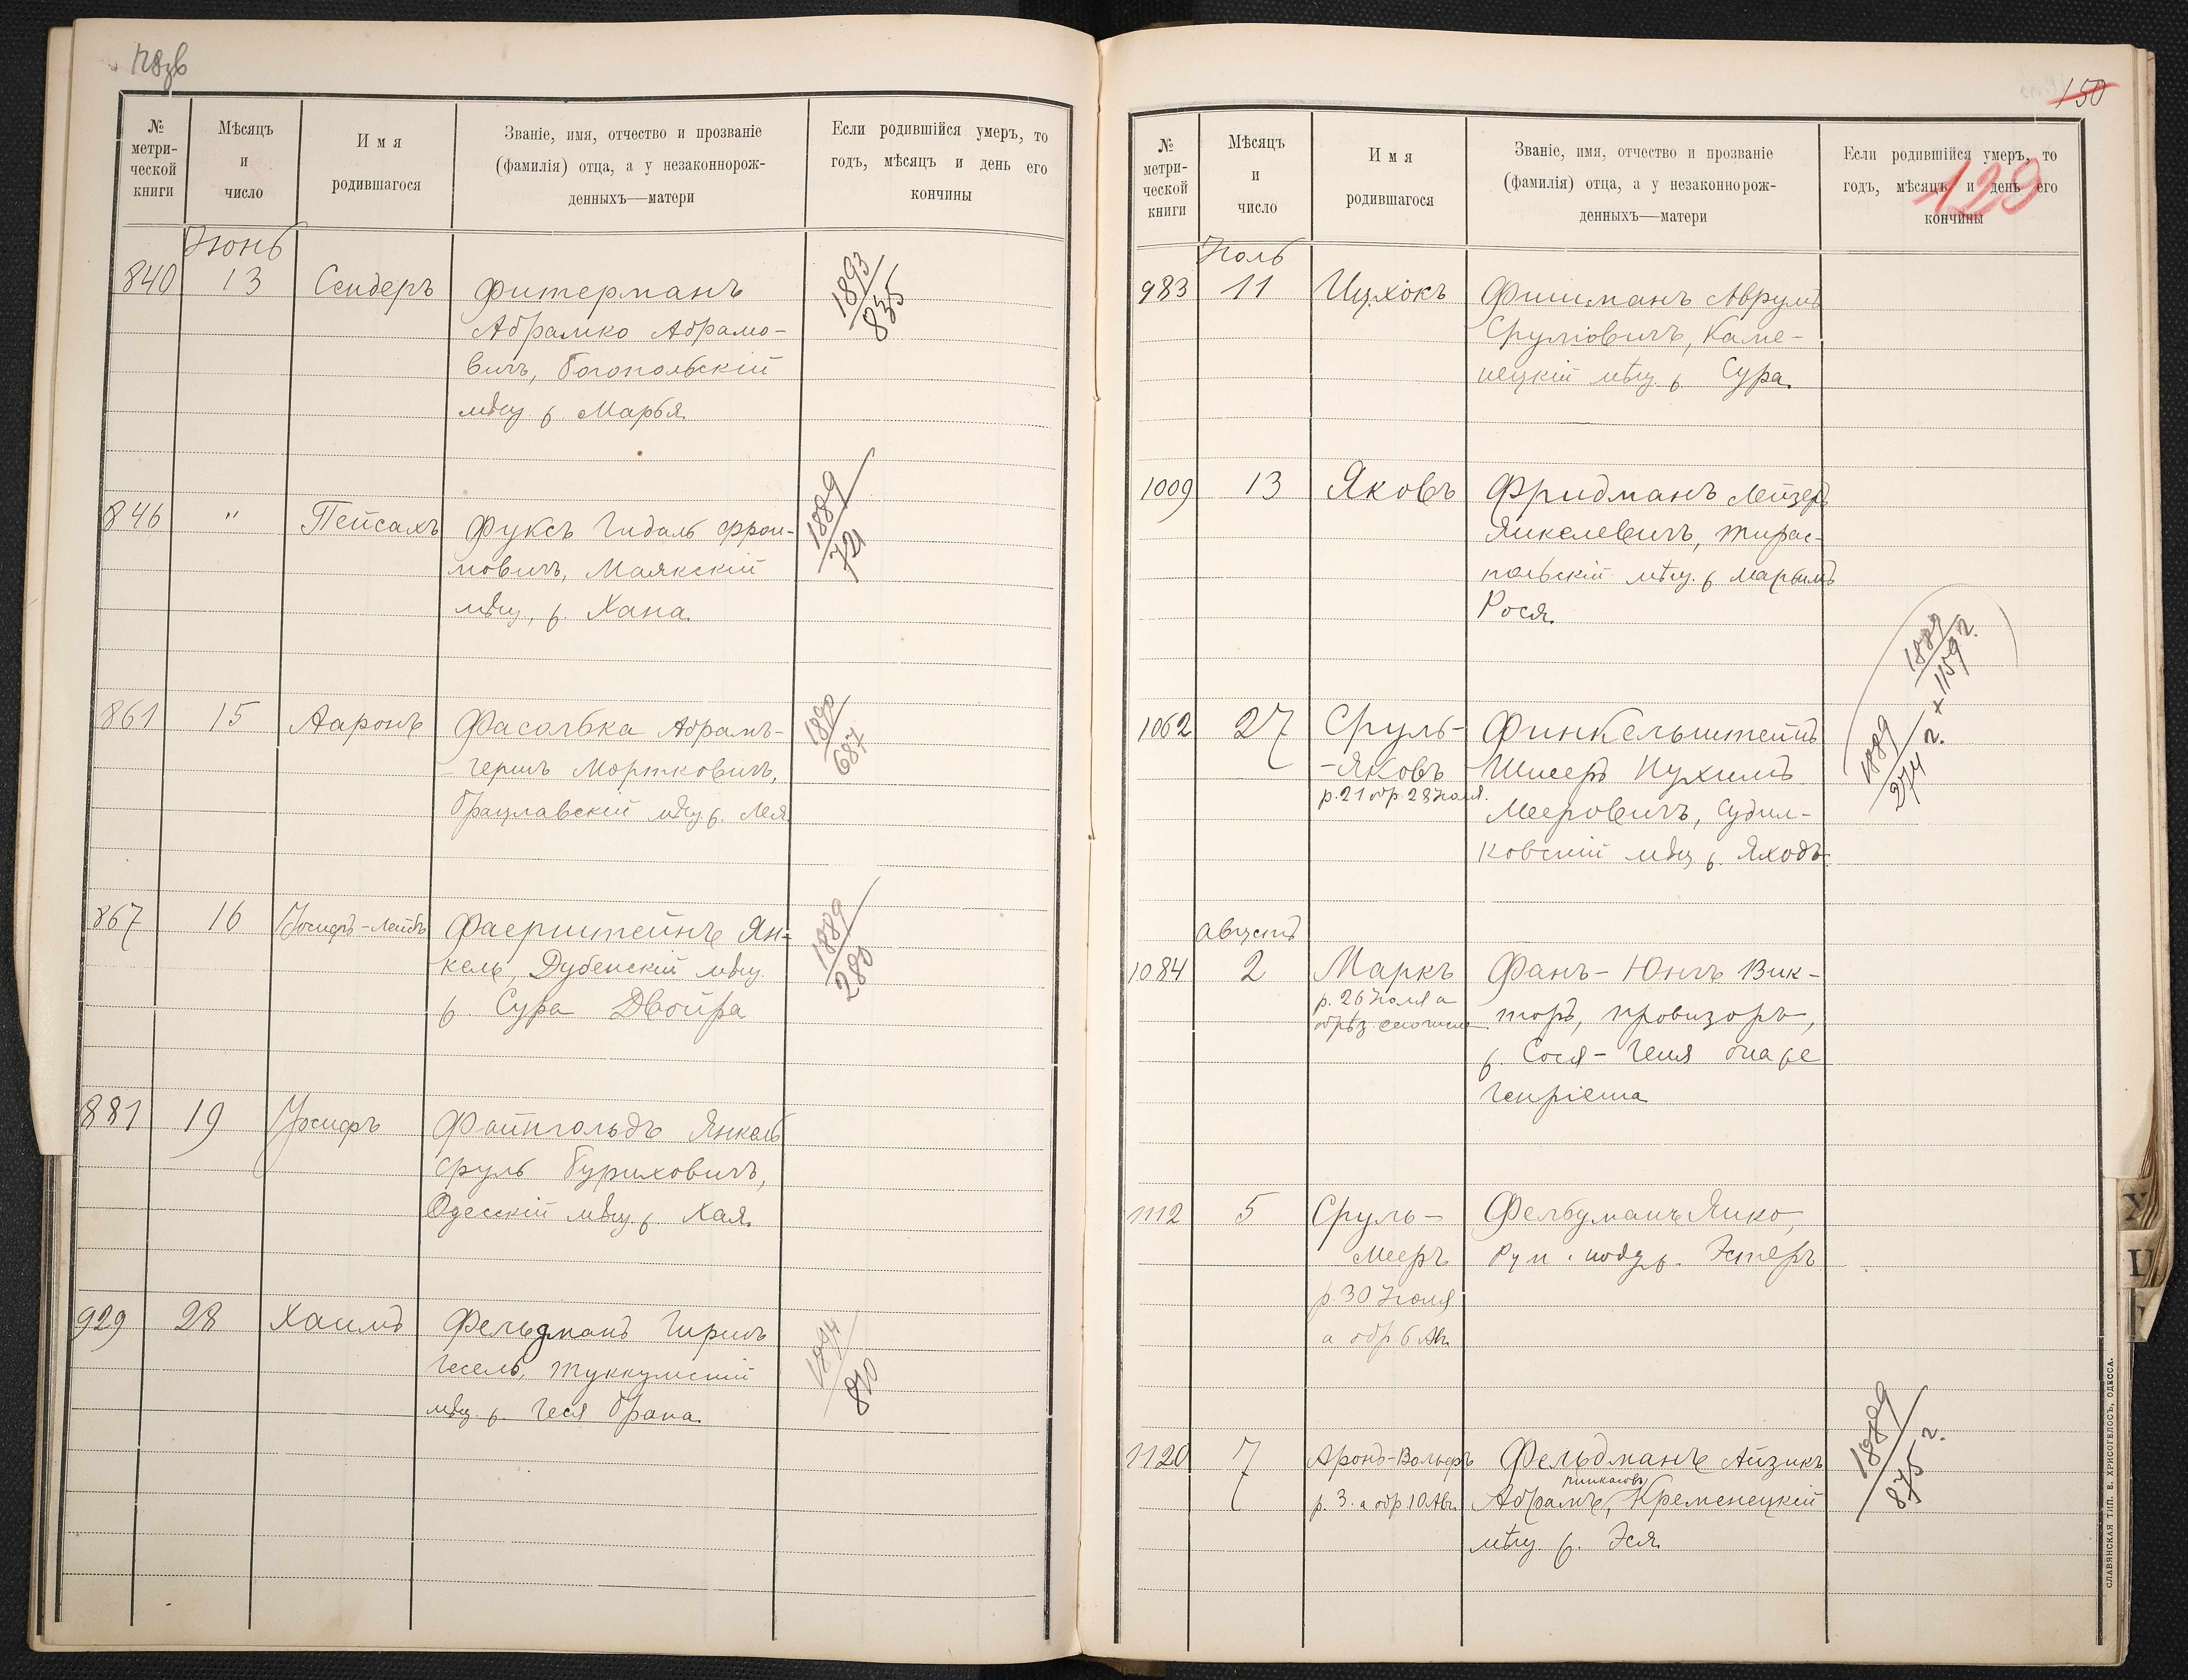 128зв
№ метри-ческой книги
Мѣсяцъ и число
Имя родившагося
Званіе, имя, отчество и прозваніе (фамилія) отца, а у незаконнорож-денныхъ—матери
Если родившійся умеръ, то годъ, мѣсяцъ и день его кончины
Іюнь
840 13 Сендеръ Фитерманъ 1893/835
Абрамко Абрамо-
вичъ, Богопольскій
мѣщ. ж. Марья.
846 " Пейсахъ Фуксъ Гидаль Фрои- 1889/721
мовичъ, Маякскій
мѣщ., ж. Хана.
861 15 Ааронъ Фасолька Абрамъ- 1890/687
-Гершъ Мортковичъ,
Брацлавскій мѣщ. ж. Лея.
867 16 Іосифъ-Лейбъ Фаерштейнъ Ян- 1889/280
кель, Дубенскій мѣщ.
ж. Сура Двойра
881 19 Іосифъ Файнгольдъ Янкель
Сруль Бурихович​ъ,
Одесскій мѣщ. ж. Хая.
929 28 Хаимъ Фельдманъ Гиршъ 1894/810
Гесель, Туккумскій
мѣщ. ж. Геся Брана.
150
129
№ метри-ческой книги
Мѣсяцъ и число
Имя родившагося
Званіе, имя, отчество и прозваніе (фамилія) отца, а у незаконнорож-денныхъ—матери
Если родившійся умеръ, то годъ, мѣсяцъ и день его кончины
Іюль
983 11 Ицхокъ Фишманъ Аврумъ
Срулiовичъ, Каме-
нецкій мѣщ. ж. Сура.
1009 13 Яковъ Фридманъ Лейзеръ
Янкелевичъ, Тирас-
польскій мѣщ. ж. Марьямъ
Рося.
1889/1159 г.
1062 27 Сруль- Финкельштейнъ 1889/274 г. +
-Яковъ Нухимъ
р. 21 обр. 28 Іюля.
Мееровичъ, Судил-
ковскій мѣщ. ж. Яходъ.
Августъ
1084 2 Маркъ Фанъ-Юнгъ Вик-
р. 26 Іюля а
обрѣз. торъ, провизоръ,
ж. Сося-Геня она же
Генріета
1112 5 Сруль- Фельдманъ Янко,
Мееръ Рум. подд. ж. Эстеръ
р. 30 Іюля
а обр. 6 Авг.
1120 7 Аронъ-Вольфъ Фельдманъ Айзикъ 1889/875 г.
Пинкасовъ
р. 3. а обр. 10 Авг. Абрамъ, Кременецкій
мѣщ. ж. Эся.
СЛАВЯНСКАЯ ТИП. Е. ХРИСОГЕЛОСЪ, ОДЕССА.